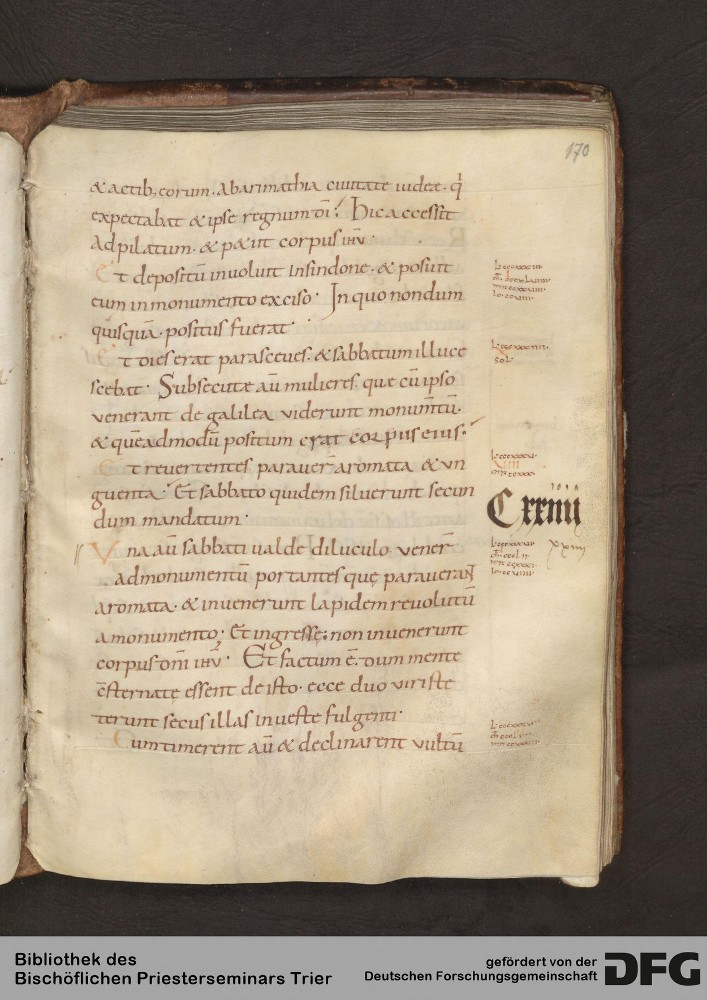 170
& actib; eorum. Abarimathia ciuitate iudeæ. q̇
expectabat & ipse regnum dī. Hic accessit
Ad pilatum. & p&iit corpus ihū.
Et depositū inuoluit insindone. & posuit
eum in monumento exciso. In quo nondum
quisquā. positus fuerat.
Et dies erat parasceues. & sabbatum illuce
scebat. Subsecutæ aū mulieres. que cū ipso
venerant de galilea viderunt monum̄tū.
& quēadmodū positum erat corpus eius.
Et reuertentes parauer̄ aromata & vn
guenta. Et sabbato quidem siluerunt secun
dum mandatum.
Cxxiiii
Vna aū sabbati ualde diluculo. vener̄
xxiiii
admonumentū portantes quę parauerant
aromata. & inuenerunt lapidem reuolutū
amonumento. Et ingresse; non inuenerunt
corpus dnī ihū. Et factum ē. dum mente
c̄sternate essent de isto. ecce duo uiri ste
terunt secus illas in ueste fulgenti.
Cum timerent aū & declinarent vultū
Bibliothek des
Bischöflichen Priesterseminars Trier
gefördert von der
Deutschen Forschungsgemeinschaft
DFG